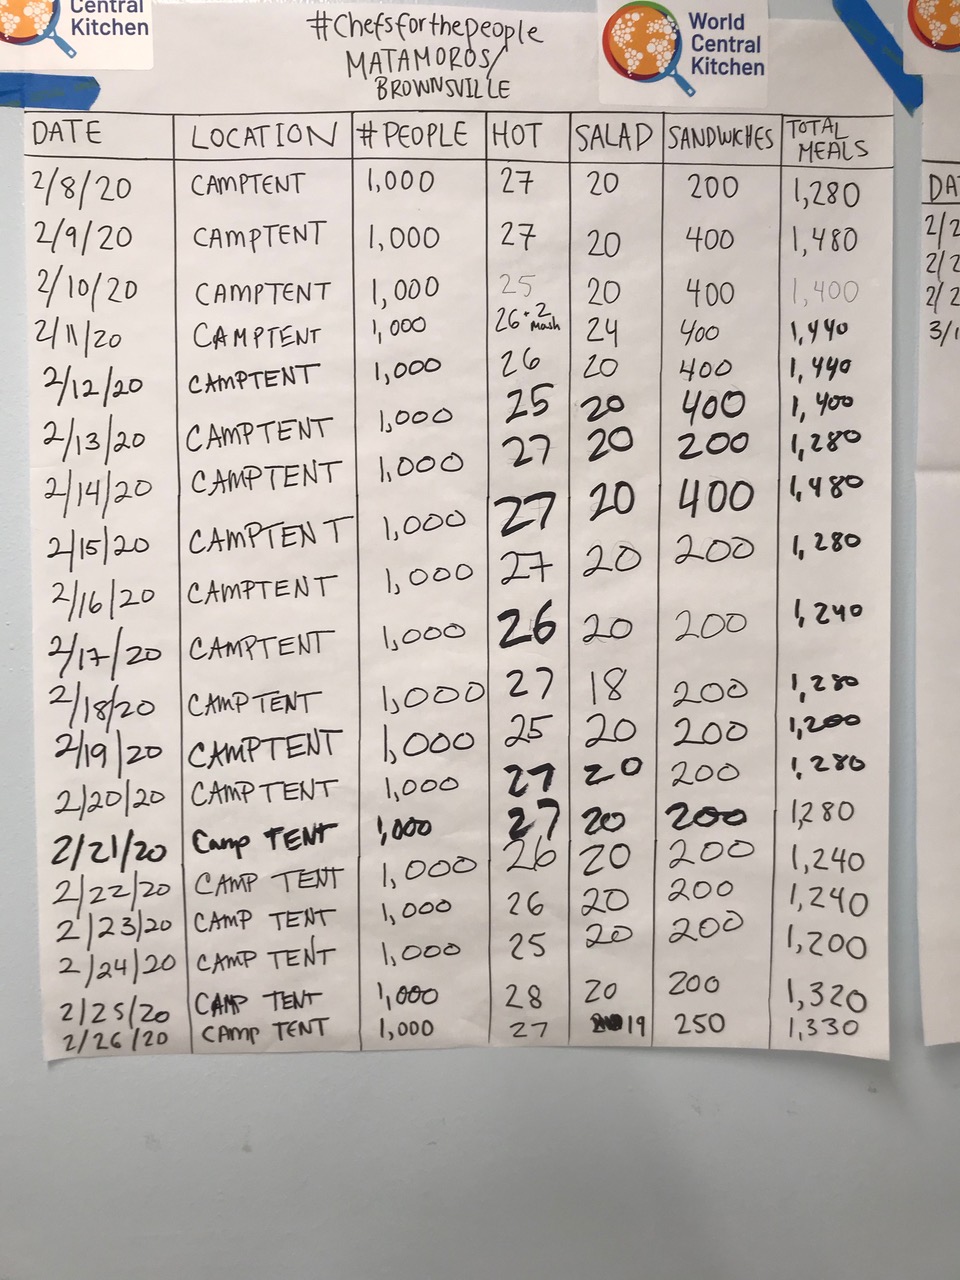 Central
Kitchen
#Chefsforthepeople
MATAMOROS/
BROWNSVILLE
World
Central
Kitchen
DATE LOCATION # PEOPLE HOT SALAD SANDWICHES TOTAL MEALS
2/8/20 CAMPTENT 1,000 27 20 200 1,280
2/9/20 CAMPTENT 1,000 27 20 400 1,480
2/10/20 CAMPTENT 1,000 25 20 400 1,400
2/11/20 CAMPTENT 1,000 26+2 Mash 24 400 1,440
2/12/20 CAMPTENT 1,000 26 20 400 1,440
2/13/20 CAMPTENT 1,000 25 20 400 1,400
2/14/20 CAMPTENT 1,000 27 20 200 1,280
2/15/20 CAMPTENT 1,000 27 20 400 1,480
2/16/20 CAMPTENT 1,000 27 20 200 1,280
2/17/20 CAMPTENT 1,000 26 20 200 1,240
2/18/20 CAMPTENT 1,000 27 18 200 1,280
2/19/20 CAMPTENT 1,000 25 20 200 1,200
2/20/20 CAMPTENT 1,000 27 20 200 1,280
2/21/20 Camp TENT 1,000 27 20 200 1,280
2/22/20 CAMP TENT 1,000 26 20 200 1,240
2/23/20 CAMP TENT 1,000 26 20 200 1,240
2/24/20 CAMP TENT 1,000 25 20 200 1,200
2/25/20 CAMP TENT 1,000 28 20 200 1,320
2/26/20 CAMP TENT 1,000 27 19 250 1,330
DA
2/2
2/2
2/2
3/1